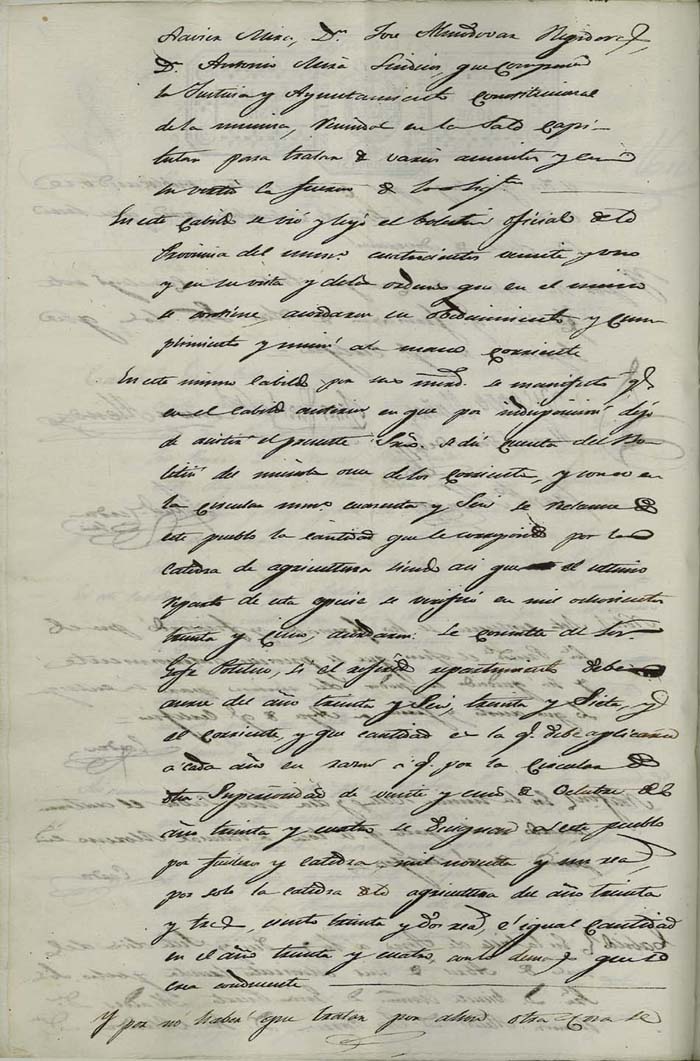 Xavier Mira, Dn. Jose Mendovar Regidores,
Dn. Antonio Mira Sindico, que componen
la Justicia y Ayuntamiento Constitucional
de la misma, reunidos en la Sala Capi-
tular para tratar de varios asuntos y en
su virtud lo hicieron de los sigtes.
En este Cabildo se vió y leyó el boletin oficial de la
Provincia del numo. cuatrocientos veinte y uno
y en su vista y de las ordenes que en el mismo
se contiene, acordaron su obedecimiento y cum-
plimiento y unirse a la mano corriente
En este mismo Cabildo por sus mrds. se manifesto qe.
en el Cabildo anterior en que por indisposicion dejó
de asistir el presente Srio. se dió cuenta del Bo-
letin del numero once de los corrientes, y como en
la circular numo. cuarenta y seis se reclama de
este pueblo la cantidad que le corresponde por la
catedra de agricultura siendo asi que el ultimo
reparto de esta especie se verificó en mil ochocientos
treinta y cinco, acordaron: Se consulte al Sor.
Gefe Politico, si el referido repartimiento debe
ser del año treinta y seis, treinta y siete, y
el corriente, y que cantidad es la qe. debe aplicarse
a cada año en razon a qe. por la circular de
otra Superioridad de veinte y cinco de Octubre del
año treinta y cuatro se designaron a este pueblo
por fuslero y catedra, mil noventa y un reas.,
por solo la catedra de agricultura del año treinta
y tres, ciento treinta y dos reas., é igual cantidad
en el año treinta y cuatro, con lo demas que sea
conducente
Y por no haber que tratar por ahora otra cosa se